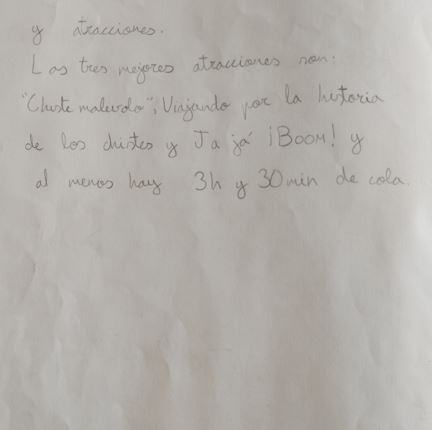 y atracciones.
Las tres mejores atracciones son:
"Chiste malvado", Viajando por la historia
de los chistes y Ja já ¡BOOM! y
al menos hay 3h y 30min de cola.